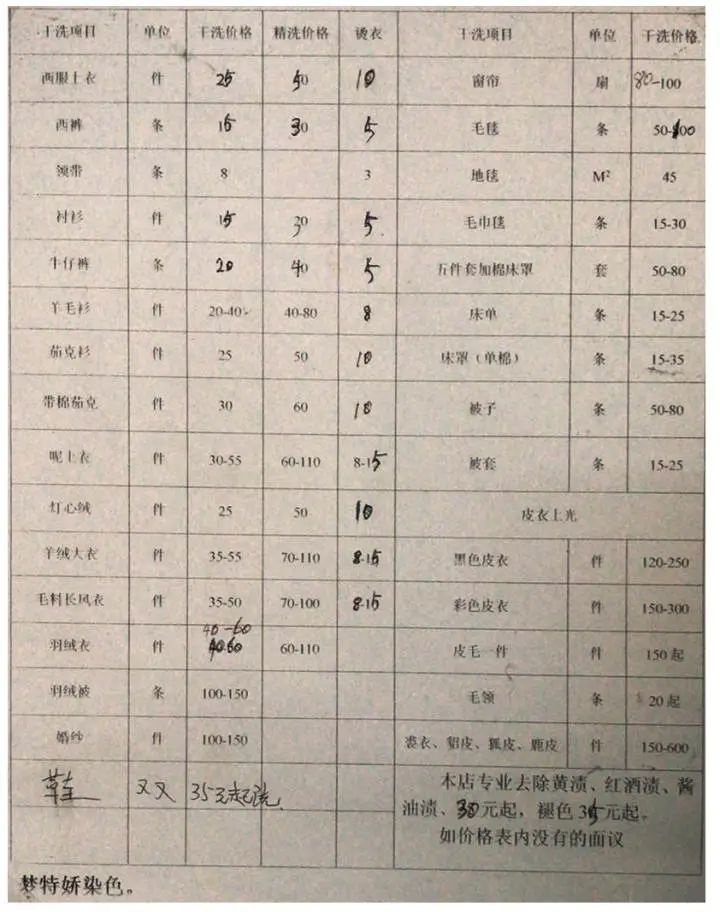 干洗项目 单位 干洗价格 精洗价格 烫衣 干洗项目 单位 干洗价格
西服上衣 件 25 50 10 窗帘 扇 80-100
西裤 条 15 30 5 毛毯 条 50-100
领带 条 8 3 地毯 M² 45
衬衫 件 15 20 5 毛巾毯 条 15-30
牛仔裤 条 20 40 5 五件套加棉床罩 套 50-80
羊毛衫 件 20-40 40-80 8 床单 条 15-25
茄克衫 件 25 50 10 床罩（单棉） 条 15-35
带棉茄克 件 30 60 10 被子 条 50-80
呢上衣 件 30-55 60-110 8-15 被套 条 15-25
灯心绒 件 25 50 10 皮衣上光
羊绒大衣 件 35-55 70-110 8-15 黑色皮衣 件 120-250
毛料长风衣 件 35-50 70-100 8-15 彩色皮衣 件 150-300
40-60
羽绒衣 件 40-60 60-110 皮毛一件 件 150起
羽绒被 条 100-150 毛领 条 20起
婚纱 件 100-150 裘衣、貂皮、狐皮、鹿皮 件 150-600
鞋 双 35元起洗
本店专业去除黄渍、红酒渍、酱
油渍、30元起，褪色35元起。
如价格表内没有的面议
梦特娇染色。